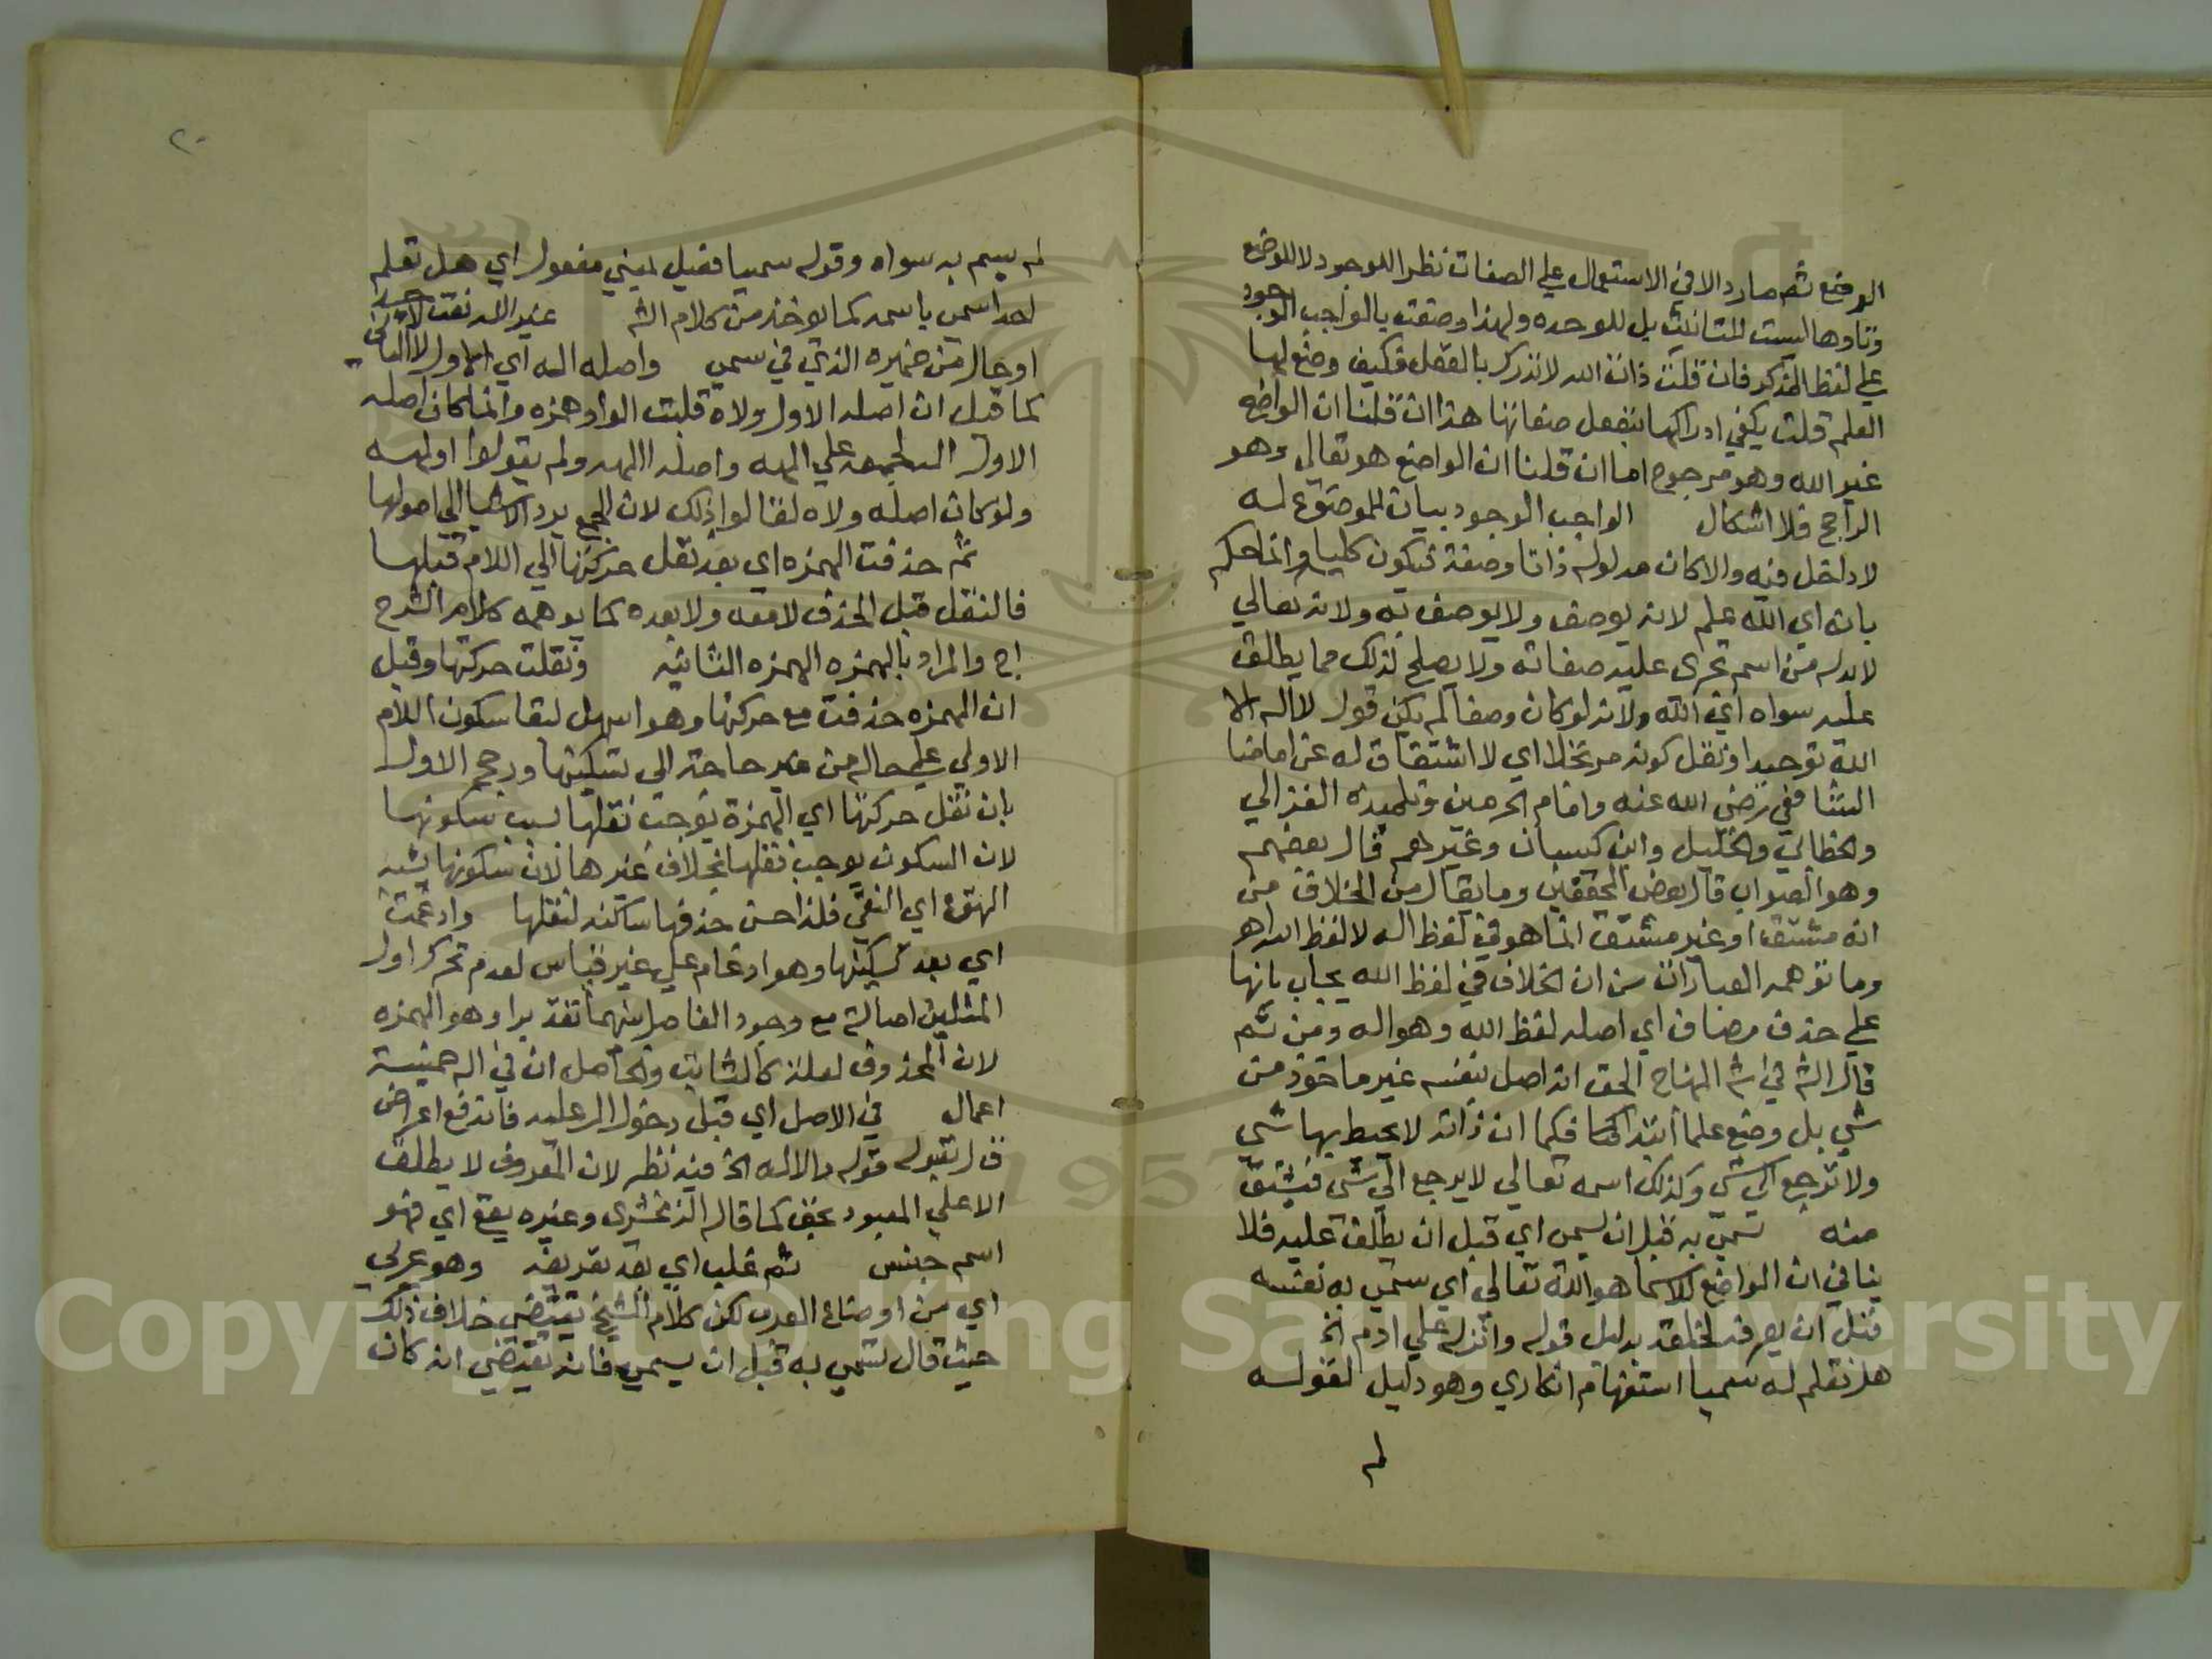 الوضع ثم صار دالا في الاستعمال علي الصفات نظرا للوجود لا للوضع
وتاوها ليست للتانيث بل للوحده ولهذا وصفت بالواجب الوجود
علي لفظ المذكر فان قلت ذات الله لا تدرك بالعقل فكيف وضع لها
العلم قلت يكفي ادراكها بتعقل صفاتها هذا ان قلنا ان الواضع
غير الله وهو مرجوح اما ان قلنا ان الواضع هو تعالي وهو
الراجح فلا اشكال الواجب الوجود بيان للموضوع له
لا داخل فيه والا كان مدلوله ذاتا وصفة فيكون كليا وانما حكم
بانه اي الله علم لانه يوصف ولا يوصف به ولانه تعالي
لا بد له من اسم تجري عليه صفاته ولا يصلح لذلك مما يطلق
عليه سواه اي الله ولانه لو كان وصفا لم يكن قول لا اله الا
الله توحيدا ونقل كونه مرتجلا اي لا اشتقاق له عن امامنا
الشافعي رضي الله عنه وامام الحرمين وتلميذه الغزالي
والخطابي والخليل وابن كيسان وغيرهم قال بعضهم
وهو الصواب قال بعض المحققين وما يقال من الخلاف من
انه مشتق او غير مشتق انما هو في لفظ اله لا لفظ الله اهـ
وما توهمه العبارات من ان الخلاف في لفظ الله يجاب بانها
علي حذف مضاف اي اصله لفظ الله وهو اله ومن ثم
قال الشم في شم المنهاج الحق انه اصل بنفسه غير ماخوذ من
شي بل وضع علما ابتدا فكما ان ذاته لا يحيط بها شي
ولا ترجع الي شي وكذلك اسمه تعالي لا يرجع الي شي فيشتق
منه تسمي به قبل ان يسمي اي قبل ان يطلق عليه فلا
ينافي ان الواضع للاسما هو الله تعالي اي سمي به نفسه
قبل ان يعرفه لخلقه بدليل قوله وانزله علي ادم الخ
هل تعلم له سميا استفهام انكاري وهو دليل لقوله
لم
٢٠
لم يسم به سواه وقوله سميا فعيل بمعني مفعول اي هل تعلم
احدا سمي باسمه كما يوخذ من كلام الشم غير الله نعت لاحد
او حال من ضميره الذي في سمي واصله اله اي الاول لا الثاني
كما قيل ان اصله الاول ولاه قلبت الواو همزه وانما كان اصله
الاول اله لجمعه علي الهه واصله االهه ولم يقولوا اولهه
ولو كان اصله ولاه لقالوا ذلك لان الجمع يرد الاشيا الي اصولها
ثم حذفت الهمزه اي بعد نقل حركتها الي اللام قبلها
فالنقل قبل الحذف لا معه ولا بعده كما يوهمه كلام الشرح
اح والمراد بالهمزه الهمزه الثانيه ونقلت حركتها وقيل
ان الهمزه حذفت مع حركتها وهو اسهل لبقا سكون اللام
الاولي علي حاله من غير حاجة الي تسكينها ورجح الاول
بان نقل حركتها اي الهمزة يوجب ثقلها بسبب سكونها
لان السكون يوجب ثقلها بخلاف غيرها لان سكونها يشبه
التهوع اي التقي فلذا حسن حذفها ساكنه لثقلها وادغمت
اي بعد تسكينها وهو ادغام علي غير قياس لعدم تحرك اول
المثلين اصالة مع وجود الفاصل بينهما تقديرا وهو الهمزه
لان المحذوف لعلة كالثابت والحاصل ان في اله خمسة
اعمال في الاصل اي قبل دخول ال عليه فاندفع اعتراض
ق ل بقوله قوله والاله الخ فيه نظر لان المعروف لا يطلق
الا علي المعبود بحق كما قاله الزمخشري وغيره يقع اي فهو
اسم جنس ثم غلب اي بعد تعريفه وهو عربي
اي من اوضاع العرب لكن كلام الشيخ يقتضي خلاف ذلك
حيث قال تسمي به قبل ان يسمي فانه يقتضي انه كان
Copyright © King Saud University
1957